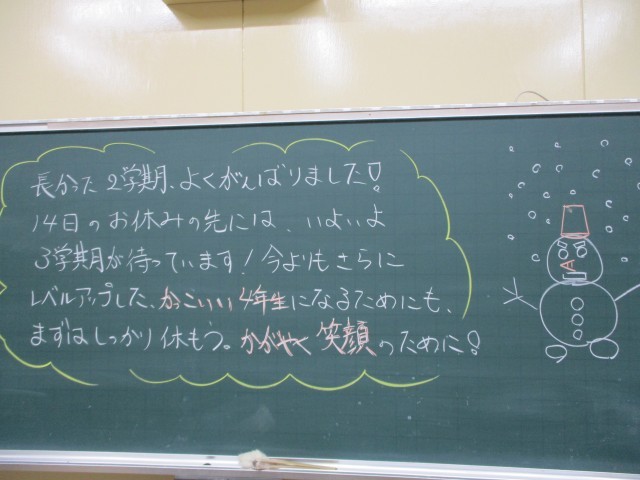 長かった2学期、よくがんばりました!
14日のお休みの先には、いよいよ
3学期が待っています!今よりもさらに
レベルアップした、かっこいい4年生になるためにも、
まずはしっかり休もう。かがやく笑顔のために!